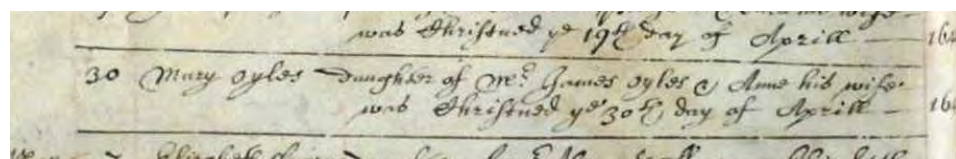 was Christned ye 19th day of Aprill — 164
30 Mary Oyles daughter of Mr. James Oyles & Anne his wife
was Christned ye 30th day of Aprill — 164
Elizabeth